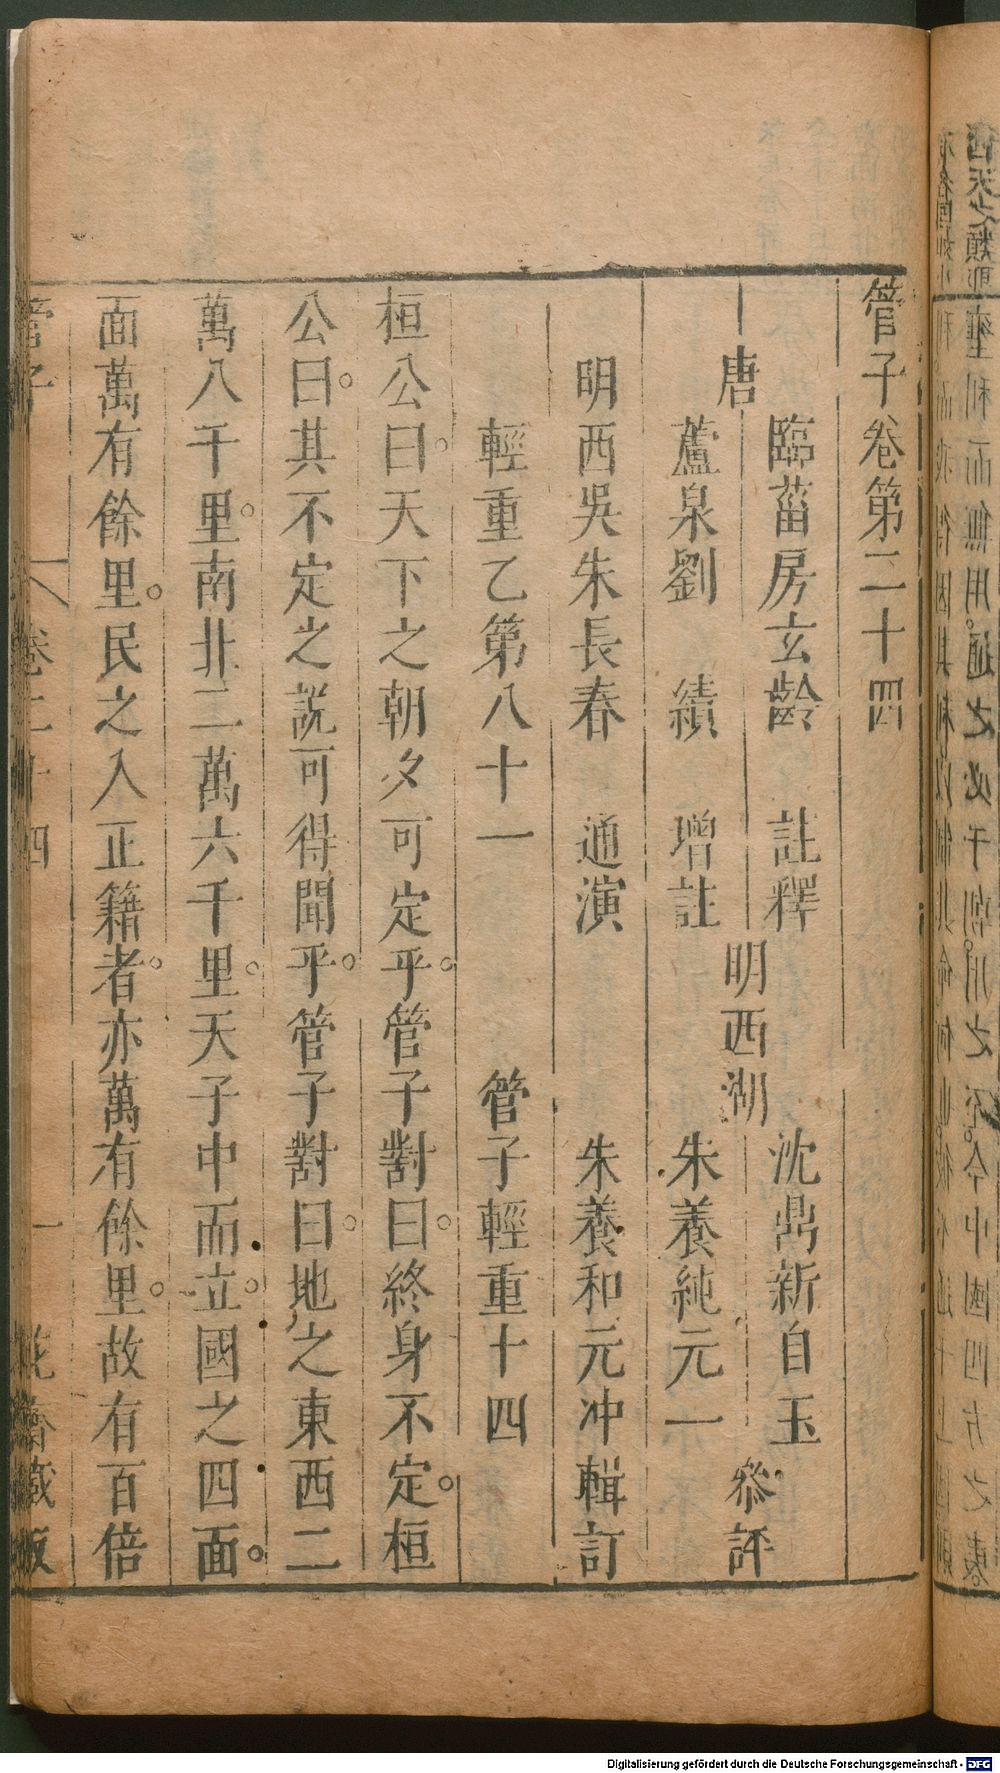 管子卷第二十四
唐
臨菑房玄齡　註釋
蘆泉劉　績　增註
明西湖
沈鼎新自玉
朱養純元一
參評
明西吳朱長春　通演
朱養和元冲輯訂
輕重乙第八十一　管子輕重十四
桓公曰。天下之朝夕可定乎。管子對曰。終身不定。桓
公曰。其不定之説可得聞乎。管子對曰。地之東西二
萬八千里。南北二萬六千里。天子中而立。國之四面。
面萬有餘里。民之入正籍者。亦萬有餘里。故有百倍
管子　卷二十四　一　花齋藏板
Digitalisierung gefördert durch die Deutsche Forschungsgemeinschaft - DFG